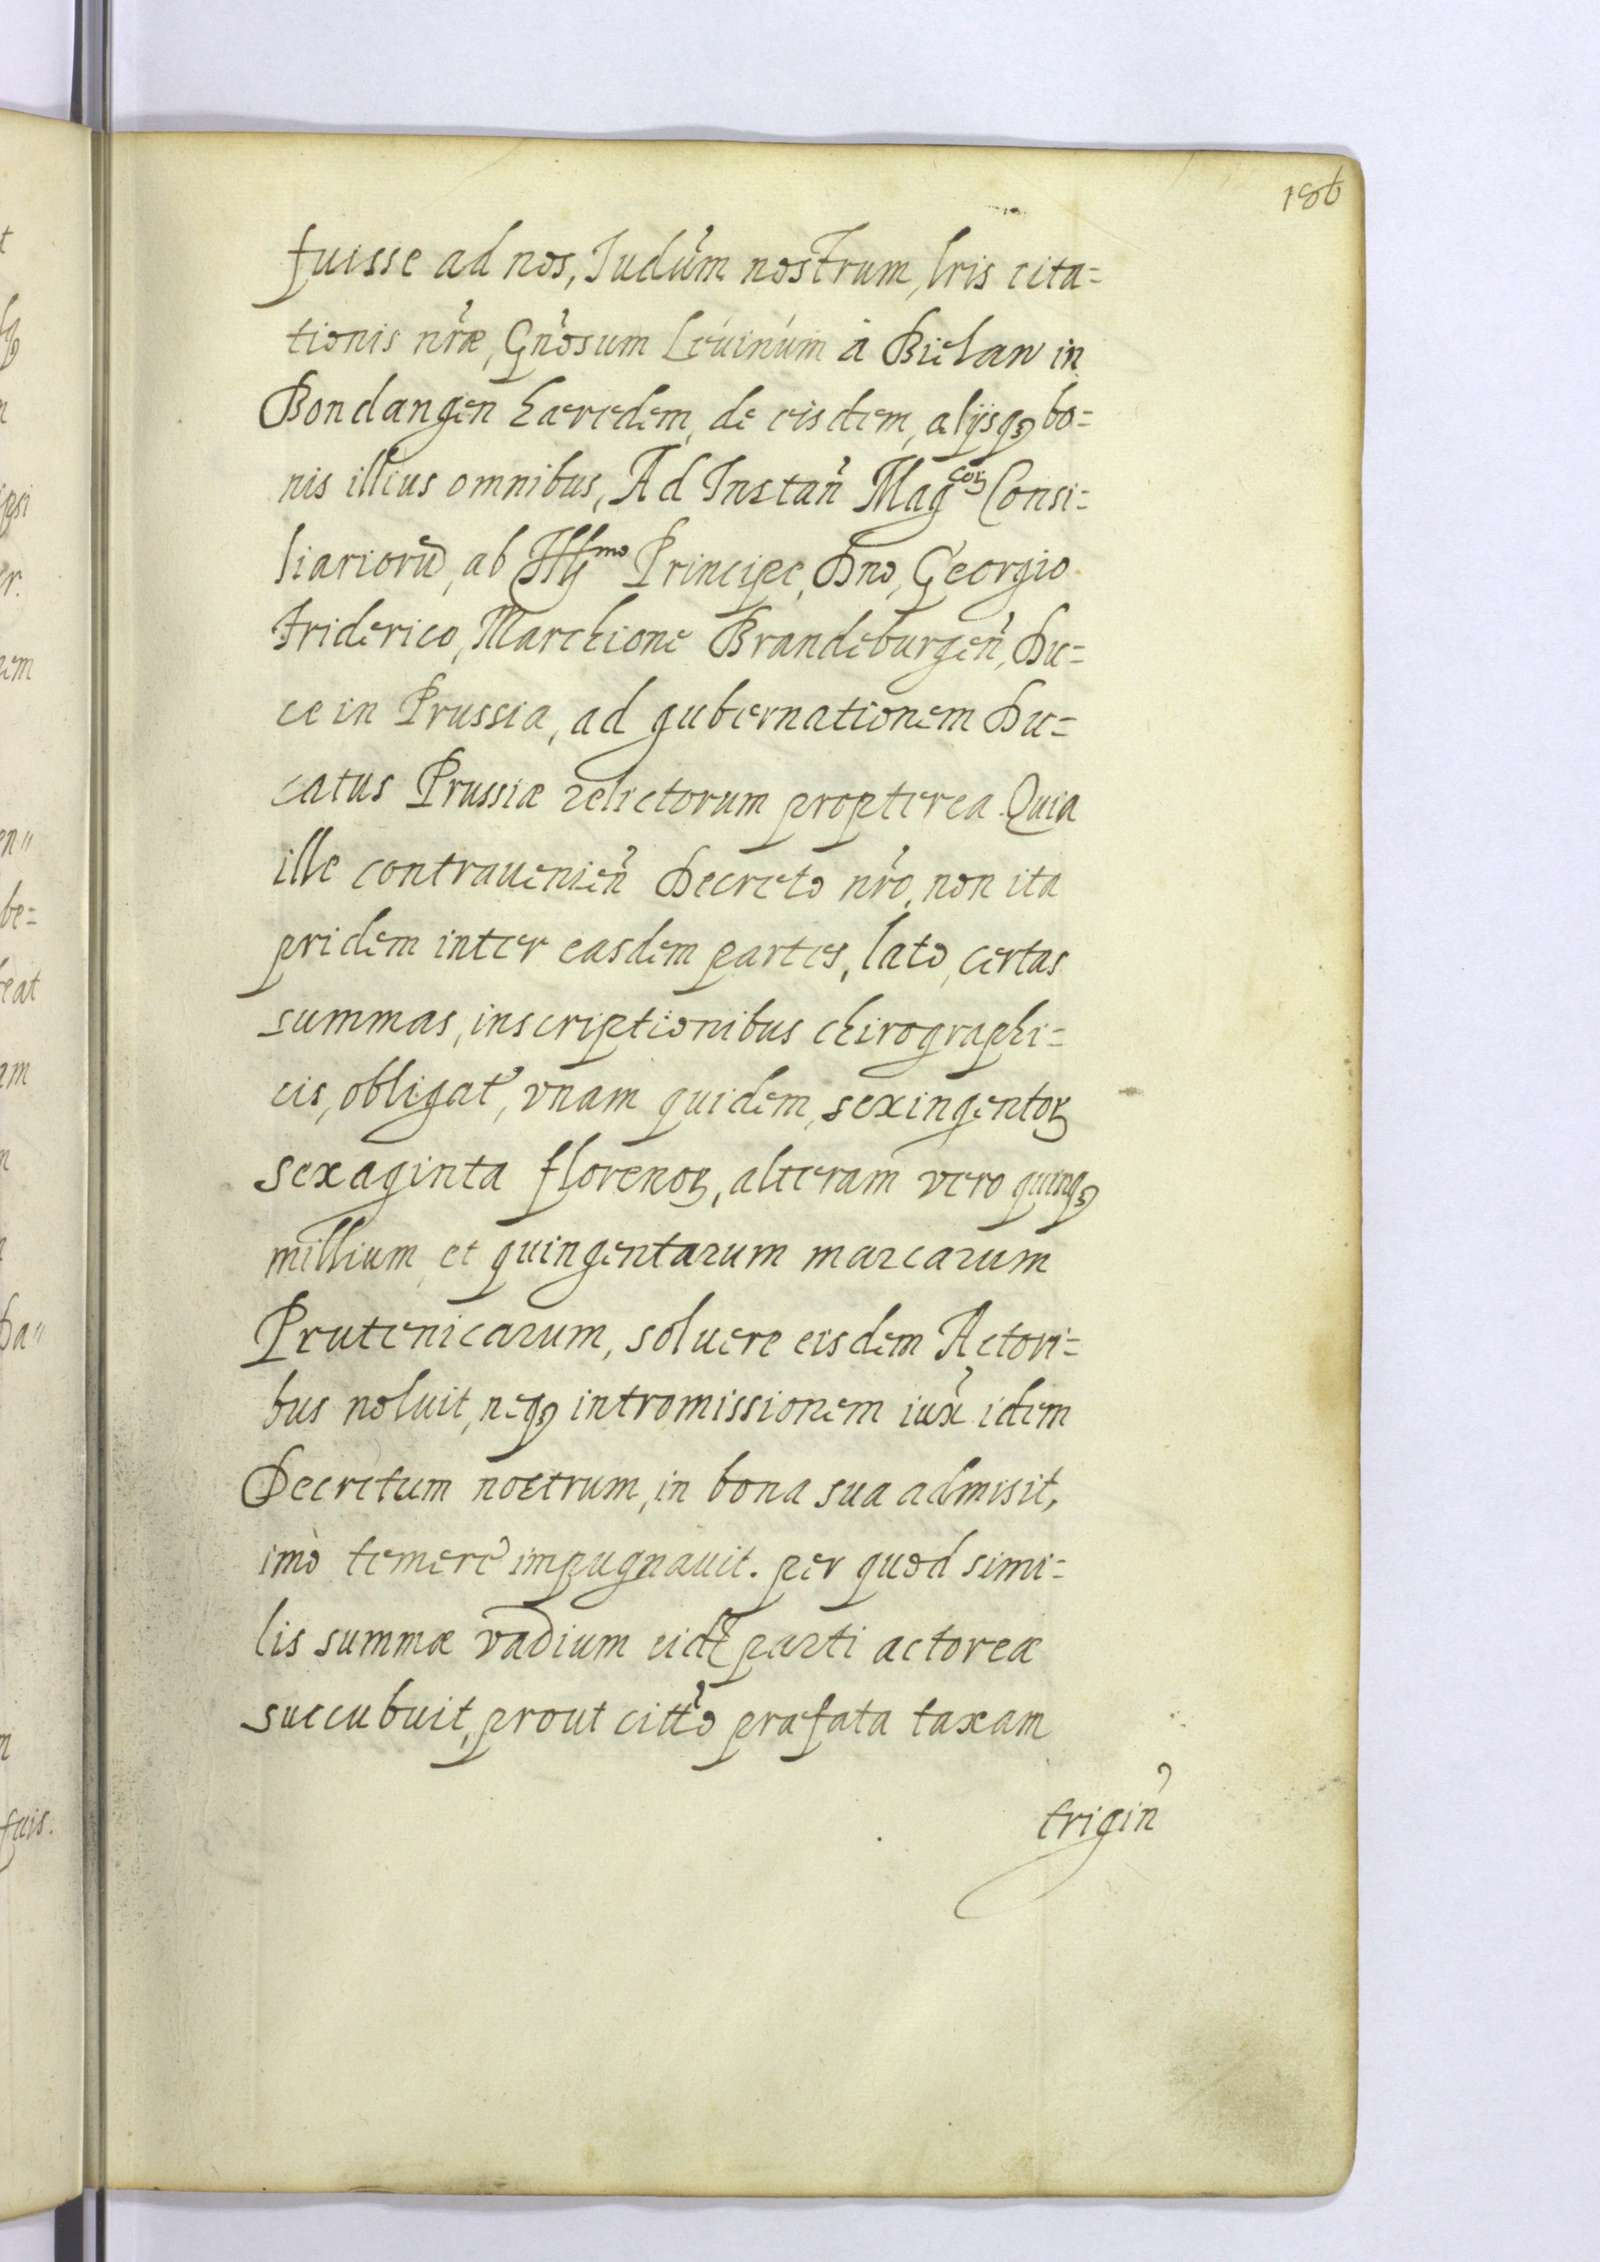 186
fuisse ad nos, Iudiu᷒m nostrum, lris cita=
tionis nr̃æ, Gñosum Leúinúm à Bielaw in
Bondangen haeredem, de eisdem, alijsq3 bo=
nis illius omnibus, Ad Instañ Mag^coꝝ Consi=
liarioru᷒, ab Ill^mo Principe, Dno, Georgio
Friderico, Marchione Brandeburgeñ, Du=
ce in Prussia, ad gubernationem Du=
catus Prussiæ relictorum propterea. Quia
ille contraveniẽn Decreto nr̃o, non ita
pridem inter easdem partes, lato, certas
summas, inscriptionibus chirographi=
cis, obligat', vnam quidem, sexingentoꝝ
sexaginta florenoꝝ, alteram vero quinq3
millium et quingentarum marcarum
Prutenicarum, soluere eisdem Actori=
bus noluit, neq3 intromissionem iux̃ idem
Decretum nostrum, in bona sua admisit,
imò temerè impugnauit. per quod simi=
lis summæ vadium eidẽ parti actoreæ
succubuit, prout citt̃o præfata taxam
trigiñ